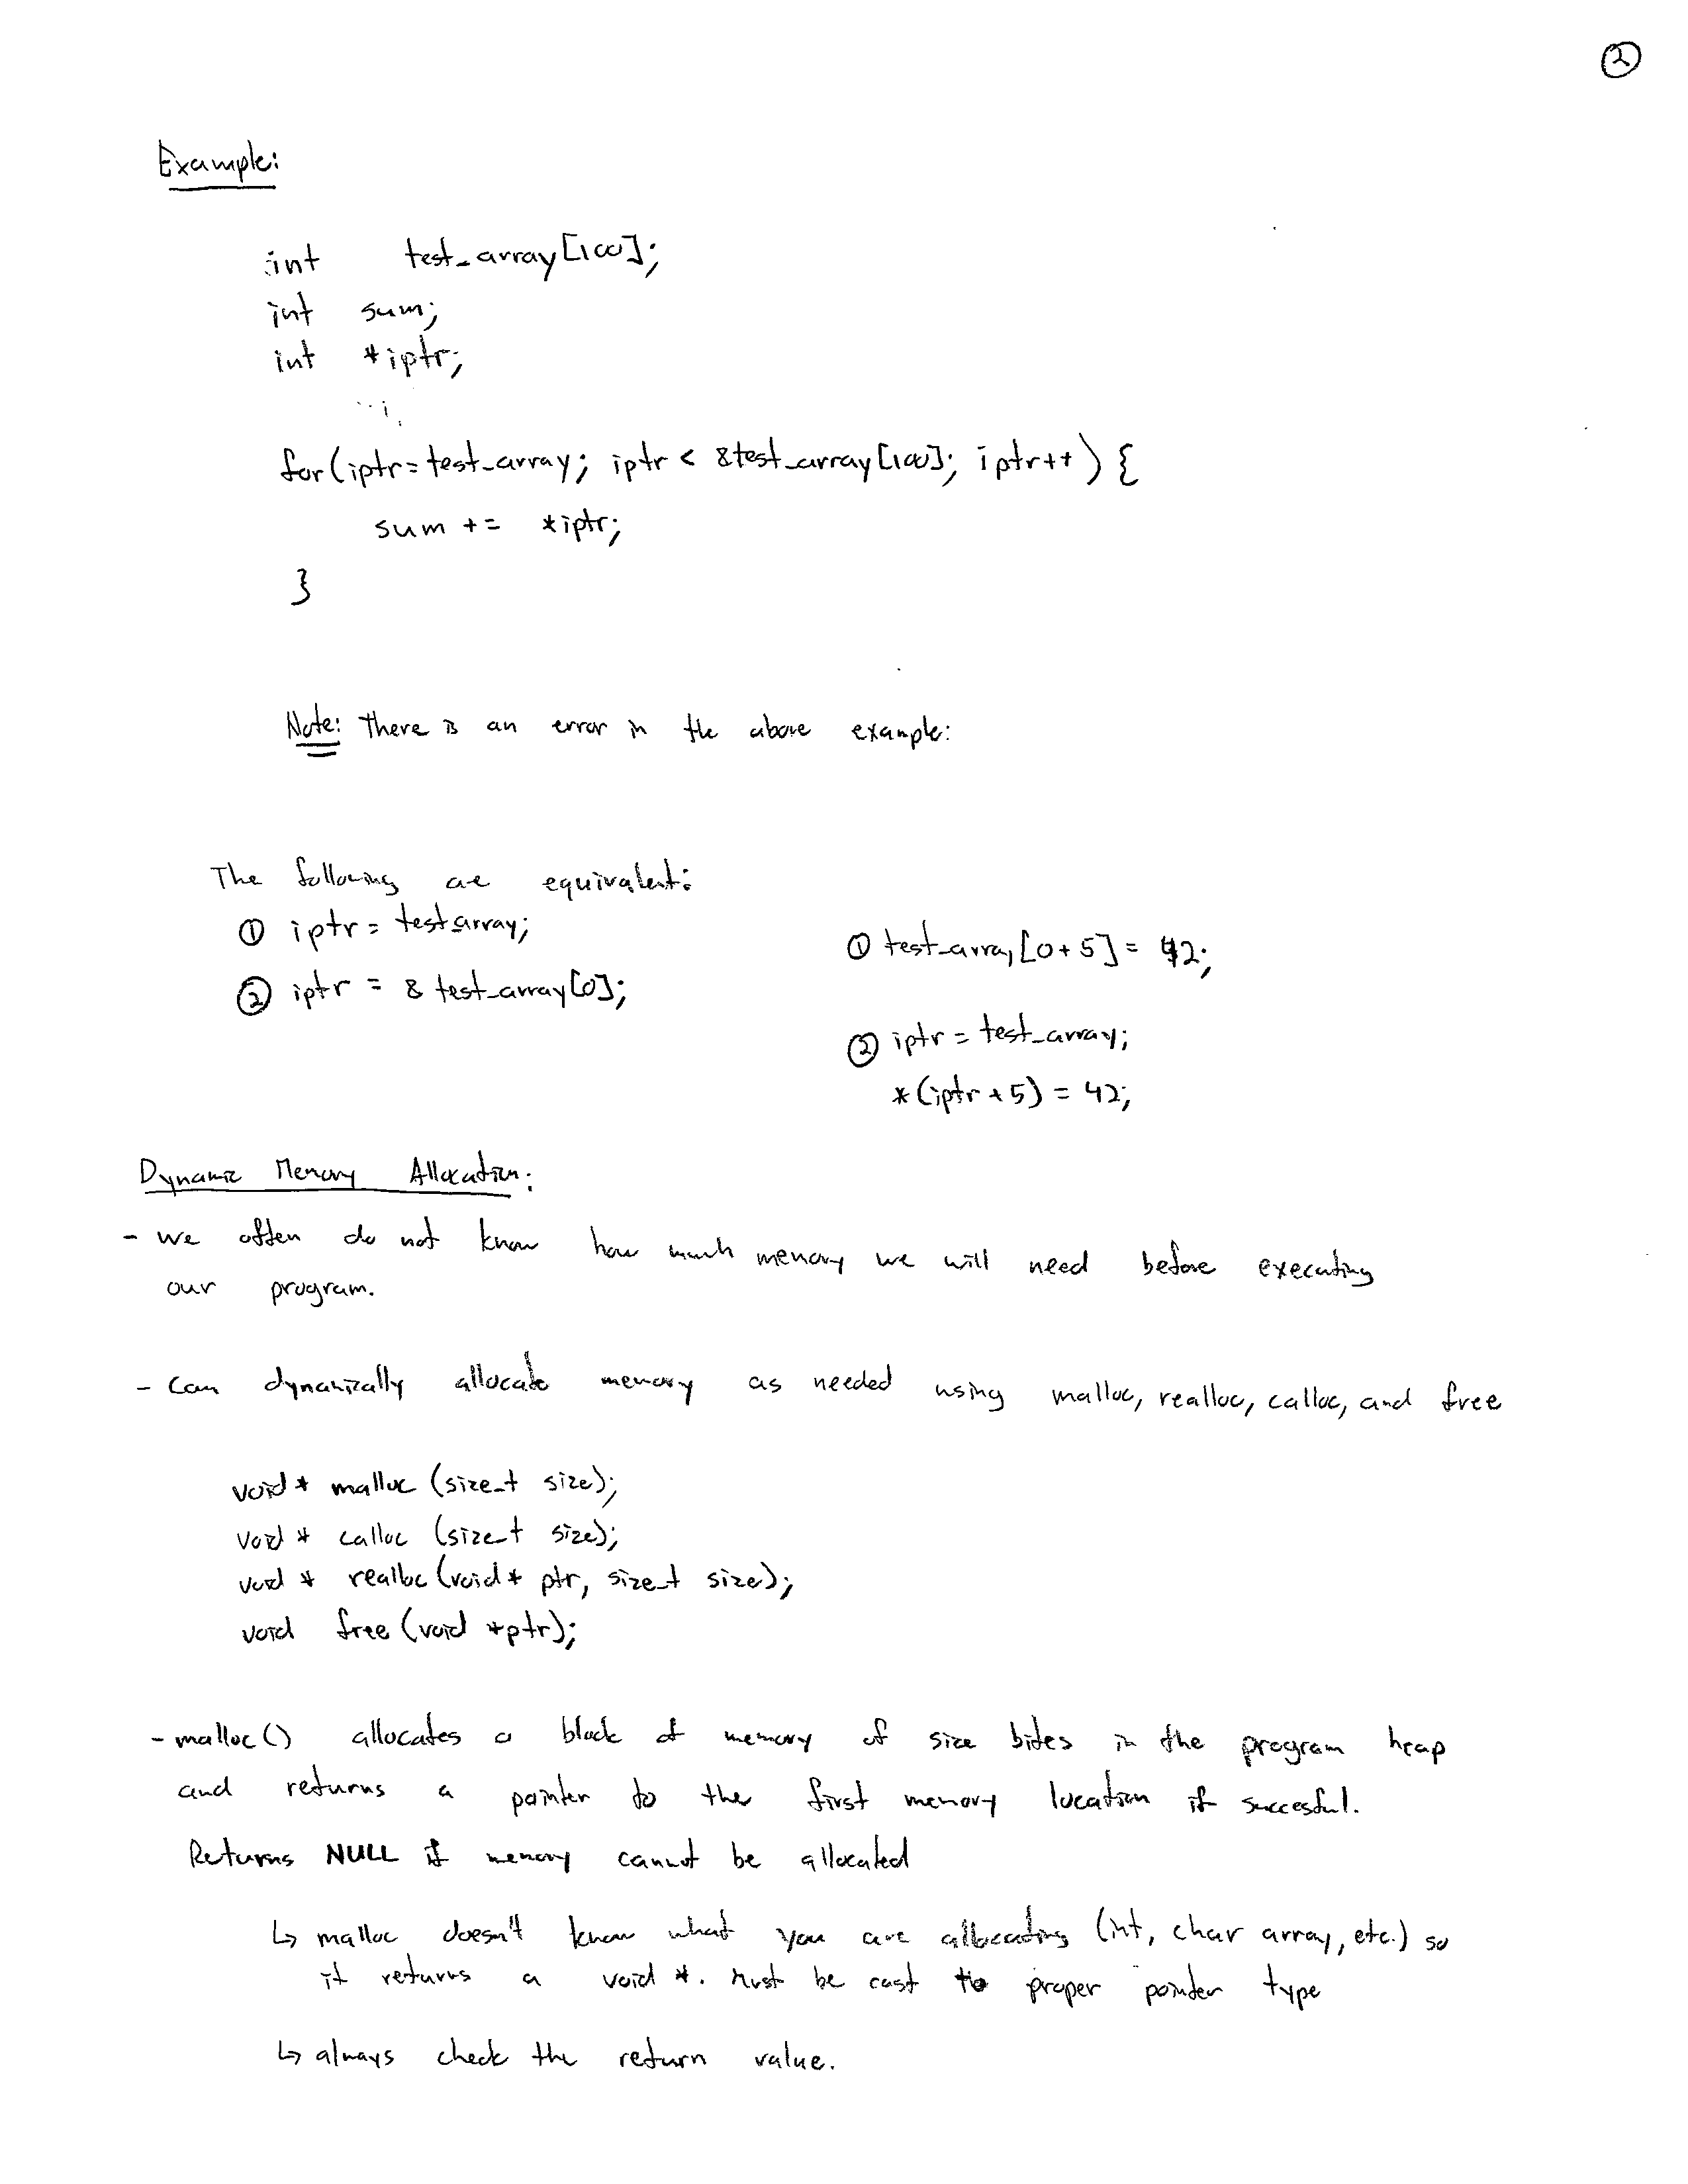 2
Example:
int test_array[100];
int sum;
int *iptr;
for(iptr=test_array; iptr < &test_array[100]; iptr++) {
sum += *iptr;
}
Note: There is an error in the above example:
The following are equivalent:
① iptr = test_array;
② iptr = & test_array[0];
① test_array[0+5] = 42;
② iptr = test_array;
*(iptr+5) = 42;
Dynamic Memory Allocation:
- we often do not know how much memory we will need before executing
our program.
- can dynamically allocate memory as needed using malloc, realloc, calloc, and free
void* malloc (size_t size);
void * calloc (size_t size);
void * realloc (void* ptr, size_t size);
void free (void *ptr);
- malloc() allocates a block of memory of size bites in the program heap
and returns a pointer to the first memory location if succesful.
Returns NULL if memory cannot be allocated
↳ malloc doesn't know what you are allocating (int, char array, etc.) so
it returns a void *. Must be cast to proper pointer type
↳ always check the return value.